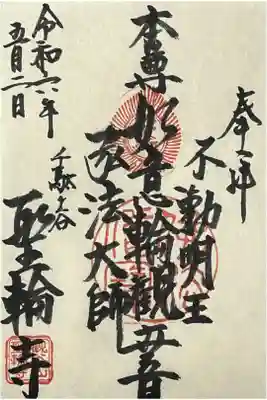 奉拝
不動明王
本尊如意輪観世音
弘法大師
千駄ヶ谷
聖輪寺
令和六年
五月二日